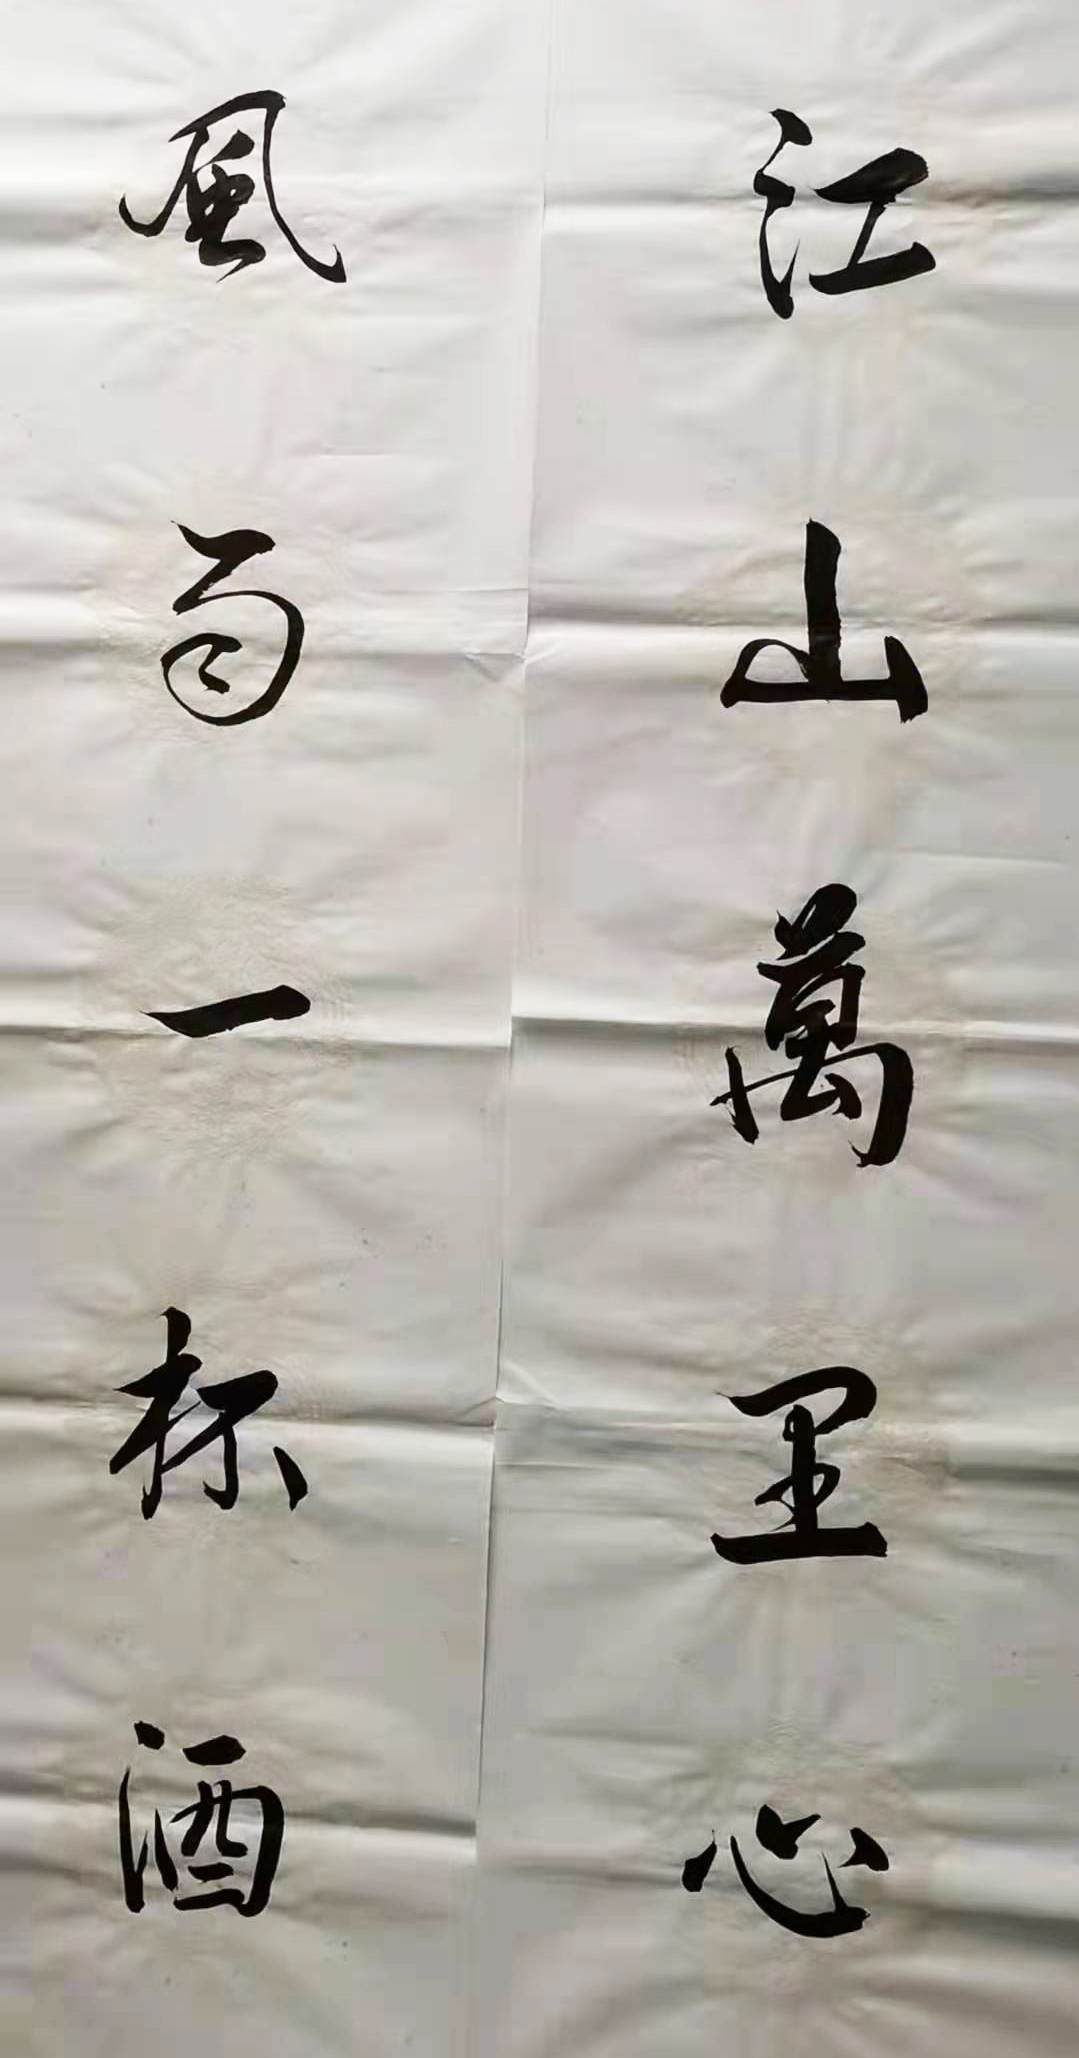 江山萬里心
風雨一杯酒